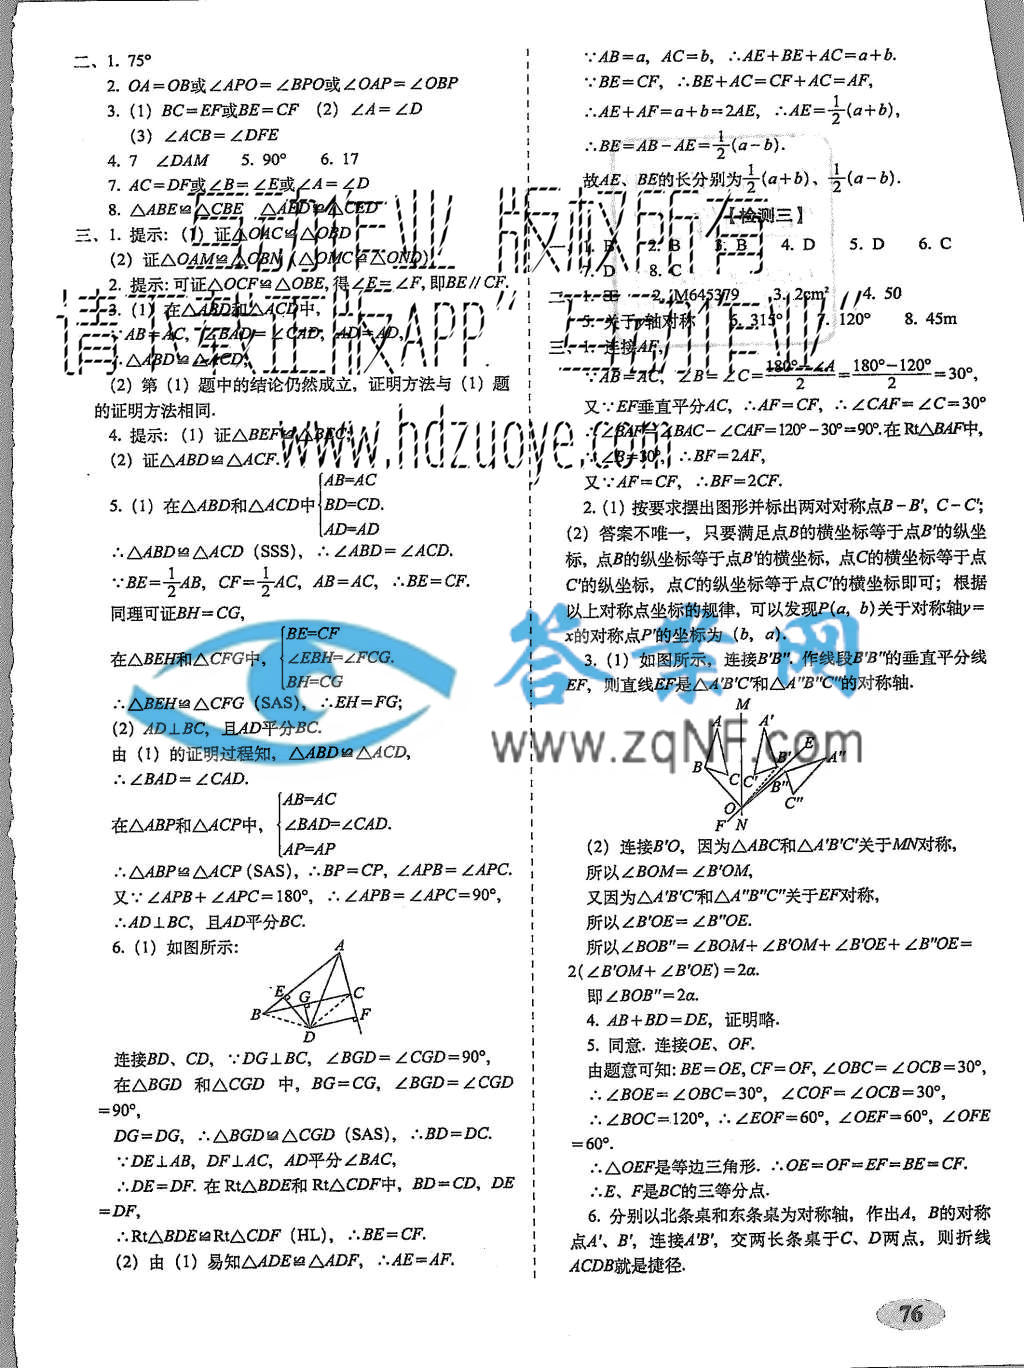 二、1. 75°
2. OA=OB或∠APO=∠BPO或∠OAP=∠OBP
3. (1) BC=EF或BE=CF (2) ∠A=∠D
(3) ∠ACB=∠DFE
4. 7 ∠DAM 5. 90° 6. 17
7. AC=DF或∠B=∠E或∠A=∠D
8. △ABE≌△CBE △AED≌△CED
三、1. 提示: (1) 证△OAC≌△OBD
(2) 证△OAM≌△OBN (△OMC≌△OND)
2. 提示: 可证△OCF≌△OBE, 得∠E=∠F, 即BE∥CF.
3. (1) 在△ABD和△ACD中,
∵AB=AC, ∠BAD=∠CAD, AD=AD,
∴△ABD≌△ACD;
(2) 第 (1) 题中的结论仍然成立, 证明方法与 (1) 题
的证明方法相同.
4. 提示: (1) 证△BEF≌△BEC;
(2) 证△ABD≌△ACF.
5. (1) 在△ABD和△ACD中
AB=AC
BD=CD.
AD=AD
∴△ABD≌△ACD (SSS), ∴∠ABD=∠ACD.
∵BE=1/2AB, CF=1/2AC, AB=AC, ∴BE=CF.
同理可证BH=CG,
在△BEH和△CFG中,
BE=CF
∠EBH=∠FCG.
BH=CG
∴△BEH≌△CFG (SAS), ∴EH=FG;
(2) AD⊥BC, 且AD平分BC.
由 (1) 的证明过程知, △ABD≌△ACD,
∴∠BAD=∠CAD.
在△ABP和△ACP中,
AB=AC
∠BAD=∠CAD.
AP=AP
∴△ABP≌△ACP (SAS), ∴BP=CP, ∠APB=∠APC.
又∵∠APB+∠APC=180°, ∴∠APB=∠APC=90°,
∴AD⊥BC, 且AD平分BC.
6. (1) 如图所示:
A
E G C
B F
D
连接BD、CD, ∵DG⊥BC, ∠BGD=∠CGD=90°,
在△BGD 和△CGD 中, BG=CG, ∠BGD=∠CGD
=90°,
DG=DG, ∴△BGD≌△CGD (SAS), ∴BD=DC.
∵DE⊥AB, DF⊥AC, AD平分∠BAC,
∴DE=DF. 在 Rt△BDE和 Rt△CDF中, BD=CD, DE
=DF,
∴Rt△BDE≌Rt△CDF (HL), ∴BE=CF.
(2) 由 (1) 易知△ADE≌△ADF, ∴AE=AF.
∵AB=a, AC=b, ∴AE+BE+AC=a+b.
∵BE=CF, ∴BE+AC=CF+AC=AF,
∴AE+AF=a+b=2AE, ∴AE=1/2(a+b),
∴BE=AB-AE=1/2(a-b).
故AE、BE的长分别为1/2(a+b)、1/2(a-b).
【检测三】
一、1. B 2. B 3. B 4. D 5. D 6. C
7. D 8. C
二、1. 2. M645379 3. 2cm² 4. 50
5. 关于y轴对称 6. 315° 7. 120° 8. 45m
三、1. 连接AF,
∵AB=AC, ∠B=∠C=(180°-∠A)/2=(180°-120°)/2=30°,
又∵EF垂直平分AC, ∴AF=CF, ∴∠CAF=∠C=30°
∴∠BAF=∠BAC-∠CAF=120°-30°=90°. 在 Rt△BAF中,
∠B=30°, ∴BF=2AF,
又∵AF=CF, ∴BF=2CF.
2. (1) 按要求摆出图形并标出两对对称点B-B′, C-C′;
(2) 答案不唯一, 只要满足点B的横坐标等于点B′的纵坐
标, 点B的纵坐标等于点B′的横坐标, 点C的横坐标等于点
C′的纵坐标, 点C的纵坐标等于点C′的横坐标即可; 根据
以上对称点坐标的规律, 可以发现P(a, b)关于对称轴y=
x的对称点P′的坐标为 (b, a).
3. (1) 如图所示, 连接B′B″. 作线段B′B″的垂直平分线
EF, 则直线EF是△A′B′C′和△A″B″C″的对称轴.
M
A A′ E
B C C′ B′ A″
B″
O C″
F N
(2) 连接B′O, 因为△ABC和△A′B′C′关于MN对称,
所以∠BOM=∠B′OM,
又因为△A′B′C′和△A″B″C″关于EF对称,
所以∠B′OE=∠B″OE.
所以∠BOB″=∠BOM+∠B′OM+∠B′OE+∠B″OE=
2(∠B′OM+∠B′OE)=2α.
即∠BOB″=2α.
4. AB+BD=DE, 证明略.
5. 同意. 连接OE、OF.
由题意可知: BE=OE, CF=OF, ∠OBC=∠OCB=30°,
∴∠BOE=∠OBC=30°, ∠COF=∠OCB=30°,
∴∠BOC=120°, ∴∠EOF=60°, ∠OEF=60°, ∠OFE
=60°.
∴△OEF是等边三角形. ∴OE=OF=EF=BE=CF.
∴E、F是BC的三等分点.
6. 分别以北条桌和东条桌为对称轴, 作出A, B的对称
点A′、B′, 连接A′B′, 交两长条桌于C、D两点, 则折线
ACDB就是捷径.
76
互动作业 版权所有
请下载正版APP"互动作业"
www.hdzuoye.com
答案网
www.zqNF.com